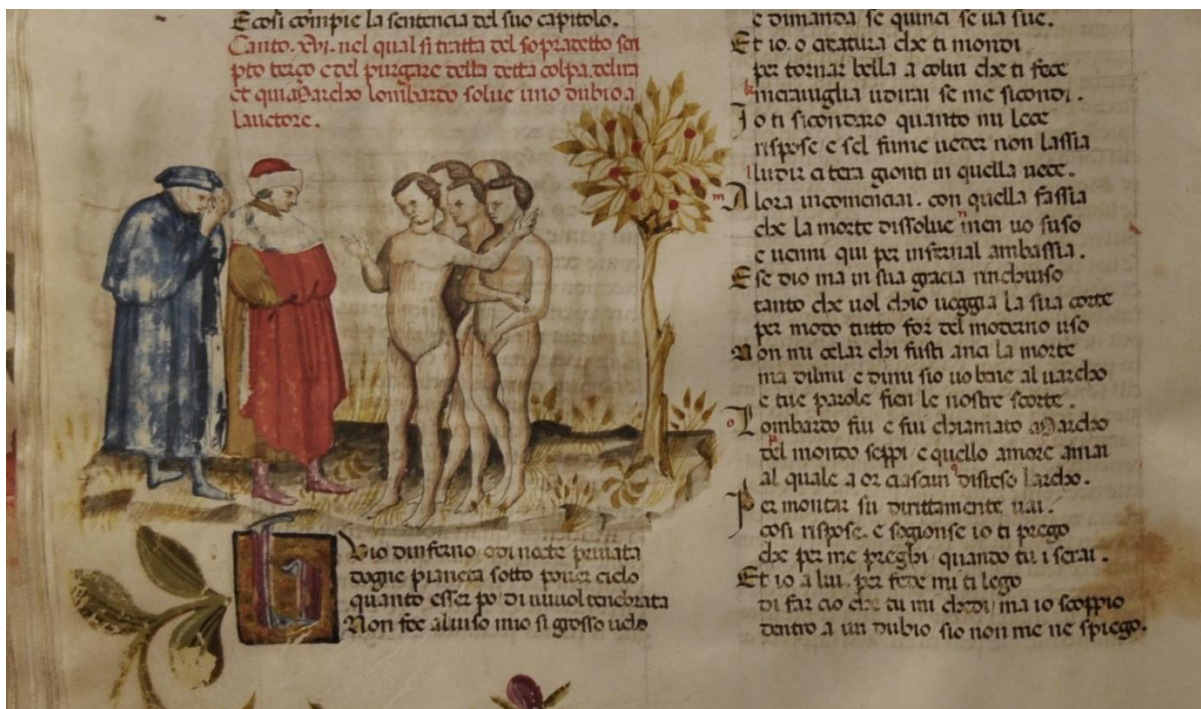 E cosi compie la sentencia del suo capitolo.
Canto .xvi. nel qual si tratta del sopradetto scri
pto terço e del purgare della detta colpa de lira
et qui Marcho lombardo solue uno dubio a
lauctore.
Buio dinferno e di nocte priuata
dogne pianeta sotto pouer cielo
quanto esser po di nuuol tenebrata
Non fece al uiso mio si grosso uelo
e dimanda se quinci se ua sue.
Et io. o creatura che ti mondi
per tornar bella a colui che ti fece
merauiglia udirai se me sicondi.
Io ti sicondaro quanto mi lece
rispose e sel fumo ueder non lassia
ludir ci tera gionti in quella uece.
Alora incomenciai. con quella fassia
che la morte dissolue men uo suso
e uenni qui per infernal ambassia.
E se dio ma in sua gracia rinchiuso
tanto che uol chio ueggia la sua corte
per modo tutto for del moderno uso
Non mi celar chi fusti anci la morte
ma dilmi e dimi sio uo bene al uarcho
e tue parole fien le nostre scorte.
Lombardo fui e fui chiamato Marcho
del mondo seppi e quello amore amai
al quale a or ciascun disteso larcho.
Per montar su dirittamente uai.
cosi rispose. e sogionse io ti prego
che per me preghi quando tu i serai.
Et io a lui. per fede mi ti lego
di far cio che tu mi chiedi ma io scoppio
dentro a un dubio sio non me ne spiego.